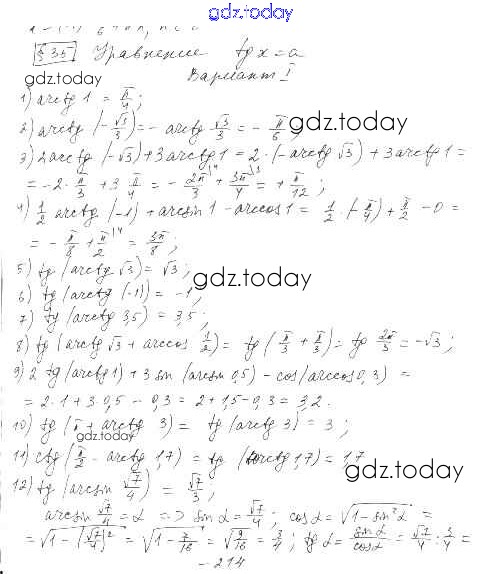 gdz.today
§ 35 Уравнение tg x = a
gdz.today
Вариант I
1) arctg 1 = π/4;
gdz.today
2) arctg (-√3/3) = - arctg √3/3 = - π/6;
3) 2arctg (-√3) + 3arctg 1 = 2·(-arctg √3) + 3arctg 1 =
= -2·π/3 + 3π/4 = - 2π/3 + 3π/4 = + π/12;
4) 1/2 arctg (-1) + arcsin 1 - arccos 1 = 1/2·(-π/4) + π/2 - 0 =
= - π/8 + π/2 = 3π/8;
5) tg (arctg √3) = √3;
gdz.today
6) tg (arctg (-1)) = -1,
7) tg (arctg 3,5) = 3,5;
8) tg (arctg √3 + arccos 1/2) = tg (π/3 + π/3) = tg 2π/3 = -√3;
9) 2 tg (arctg 1) + 3 sin (arcsin 0,5) - cos (arccos 0,3) =
= 2·1 + 3·0,5 - 0,3 = 2 + 1,5 - 0,3 = 3,2.
10) tg (π + arctg 3) = tg (arctg 3) = 3;
gdz.today
11) ctg (π/2 - arctg 1,7) = tg (arctg 1,7) = 1,7
gdz.today
12) tg (arcsin √7/4) = √7/3;
arcsin √7/4 = α => sin α = √7/4; cos α = √(1 - sin²α) =
= √(1 - (√7/4)²) = √(1 - 7/16) = √(9/16) = 3/4; tg α = sin α/cos α = √7/4 : 3/4 =
- 214